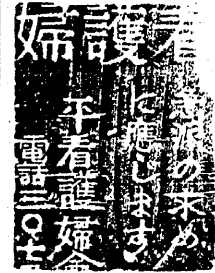 看護婦
派の求め
に應じます
平看護婦會
電話二〇七